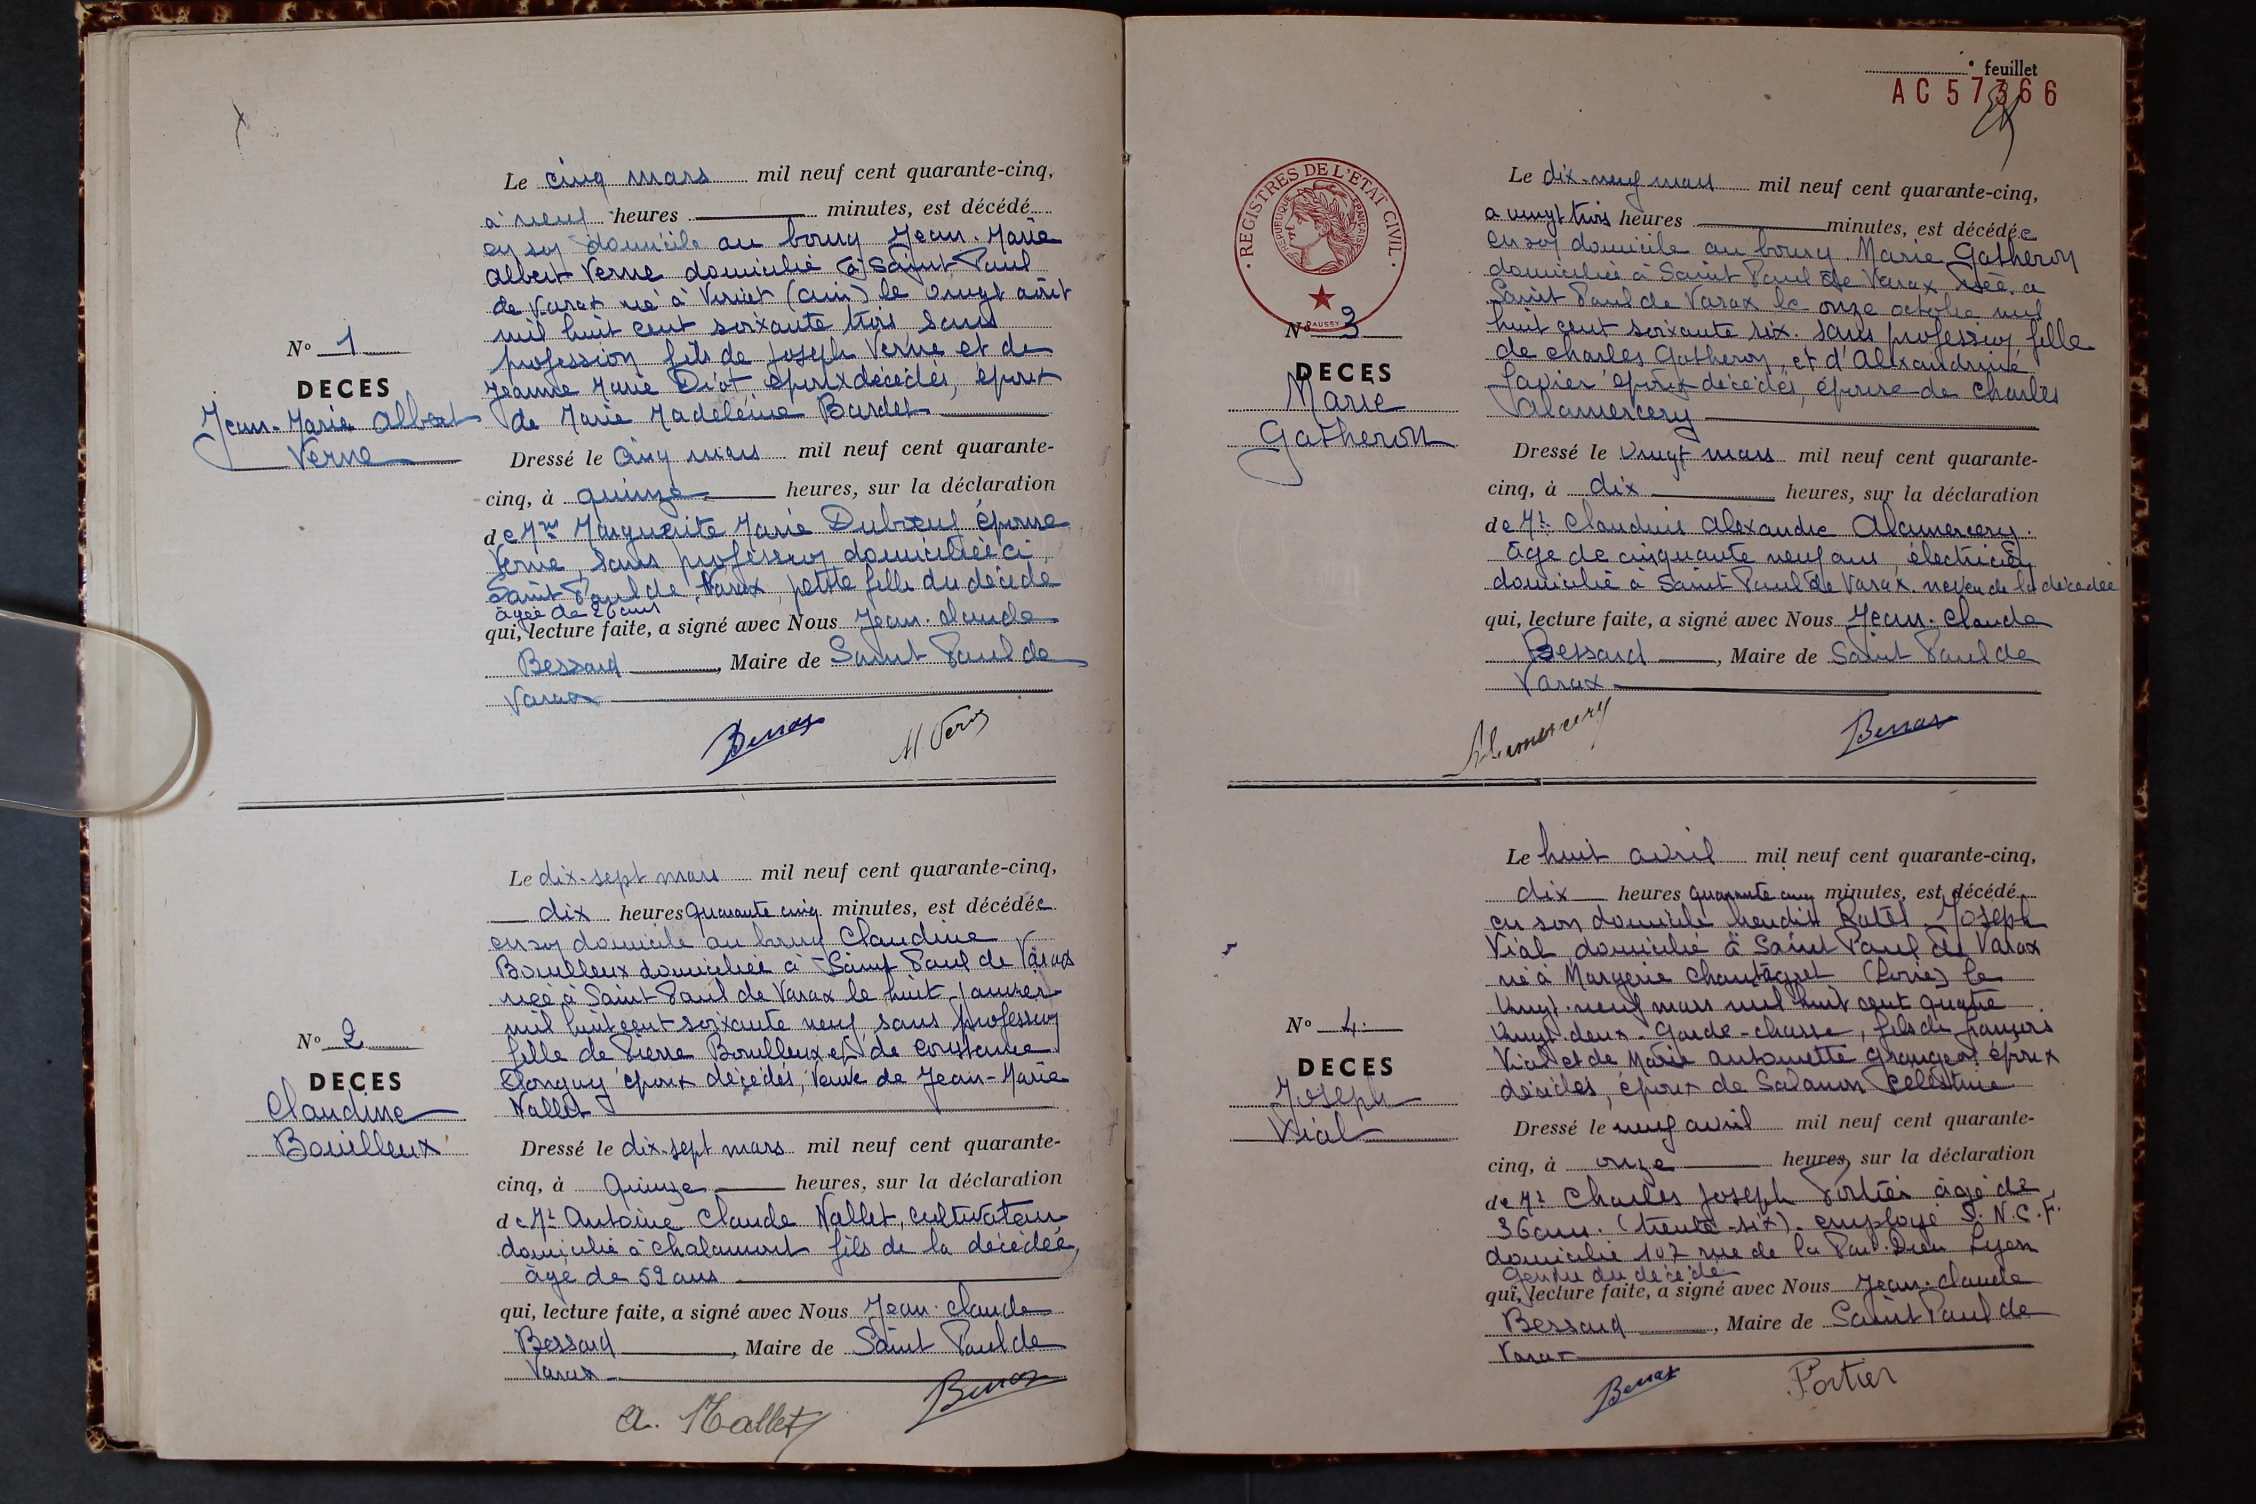 N° 1
DECES
Jean-Marie Albert
Verne
Le cinq mars mil neuf cent quarante-cinq,
à neuf heures minutes, est décédé
en son domicile au bourg Jean-Marie
Albert Verne domicilié à Saint-Paul
de Varax né à (Ain) le vingt août
mil huit cent soixante trois sans
profession fils de Joseph Verne et de
Jeanne Marie époux décédés, époux
de Marie Madeleine Bardet
Dressé le cinq mars mil neuf cent quarante-
cinq, à quinze heures, sur la déclaration
de Mme Marguerite Marie Dubœuf épouse
Verne, sans profession domiciliée à
Saint Paul de Varax, petite fille du décédé
âgée de 26 ans
qui, lecture faite, a signé avec Nous Jean-Claude
Bessard, Maire de Saint Paul de
Varax
Bessard M Verne
N° 2
DECES
Claudine
Bouilleux
Le dix-sept mars mil neuf cent quarante-cinq,
dix heures quarante cinq minutes, est décédée
en son domicile au bourg Claudine
Bouilleux domiciliée à Saint Paul de Varax
née à Saint Paul de Varax le huit janvier
mil huit cent soixante neuf sans profession
fille de Pierre Bouilleux et de Constance
époux décédés, veuve de Jean-Marie
Nallet
Dressé le dix-sept mars mil neuf cent quarante-
cinq, à quinze heures, sur la déclaration
de Mr Antoine Claude Nallet, cultivateur
domicilié à Chalamont fils de la décédée,
âgé de 52 ans
qui, lecture faite, a signé avec Nous Jean-Claude
Bessard, Maire de Saint Paul de
Varax
A. Nallet Bessard
° feuillet
AC 57366
REGISTRES DE L'ETAT CIVIL
REPUBLIQUE FRANÇAISE
N° 3
DECES
Marie
Gatheron
Le dix-neuf mars mil neuf cent quarante-cinq,
à vingt trois heures minutes, est décédée
en son domicile au bourg Marie Gatheron
domiciliée à Saint Paul de Varax née à
Saint Paul de Varax le onze octobre mil
huit cent soixante six. sans profession fille
de Charles Gatheron, et d'Alexandrine
époux décédés, épouse de Charles
Alamercery
Dressé le vingt mars mil neuf cent quarante-
cinq, à dix heures, sur la déclaration
de Mr Claudius Alexandre Alamercery.
âgé de cinquante neuf ans, électricien
domicilié à Saint Paul de Varax. neveu de la décédée
qui, lecture faite, a signé avec Nous Jean-Claude
Bessard, Maire de Saint Paul de
Varax
Alamercery Bessard
N° 4.
DECES
Joseph
Vial
Le huit avril mil neuf cent quarante-cinq,
dix heures quarante cinq minutes, est décédé
en son domicile lieudit Joseph
Vial domicilié à Saint Paul de Varax
né à Margerie Chantagret (Loire) le
vingt-neuf mars mil huit cent quatre
vingt-deux. Garde-chasse, fils de François
Vial et de Marie Antoinette époux
décédés, époux de Salamon Célestine
Dressé le neuf avril mil neuf cent quarante-
cinq, à onze heures, sur la déclaration
de Mr Charles Joseph Portier âgé de
36 ans. (trente-six). employé S.N.C.F.
domicilié 107 rue de la Part-Dieu Lyon
Gendre du décédé
qui, lecture faite, a signé avec Nous Jean-Claude
Bessard, Maire de Saint Paul de
Varax
Bessard Portier